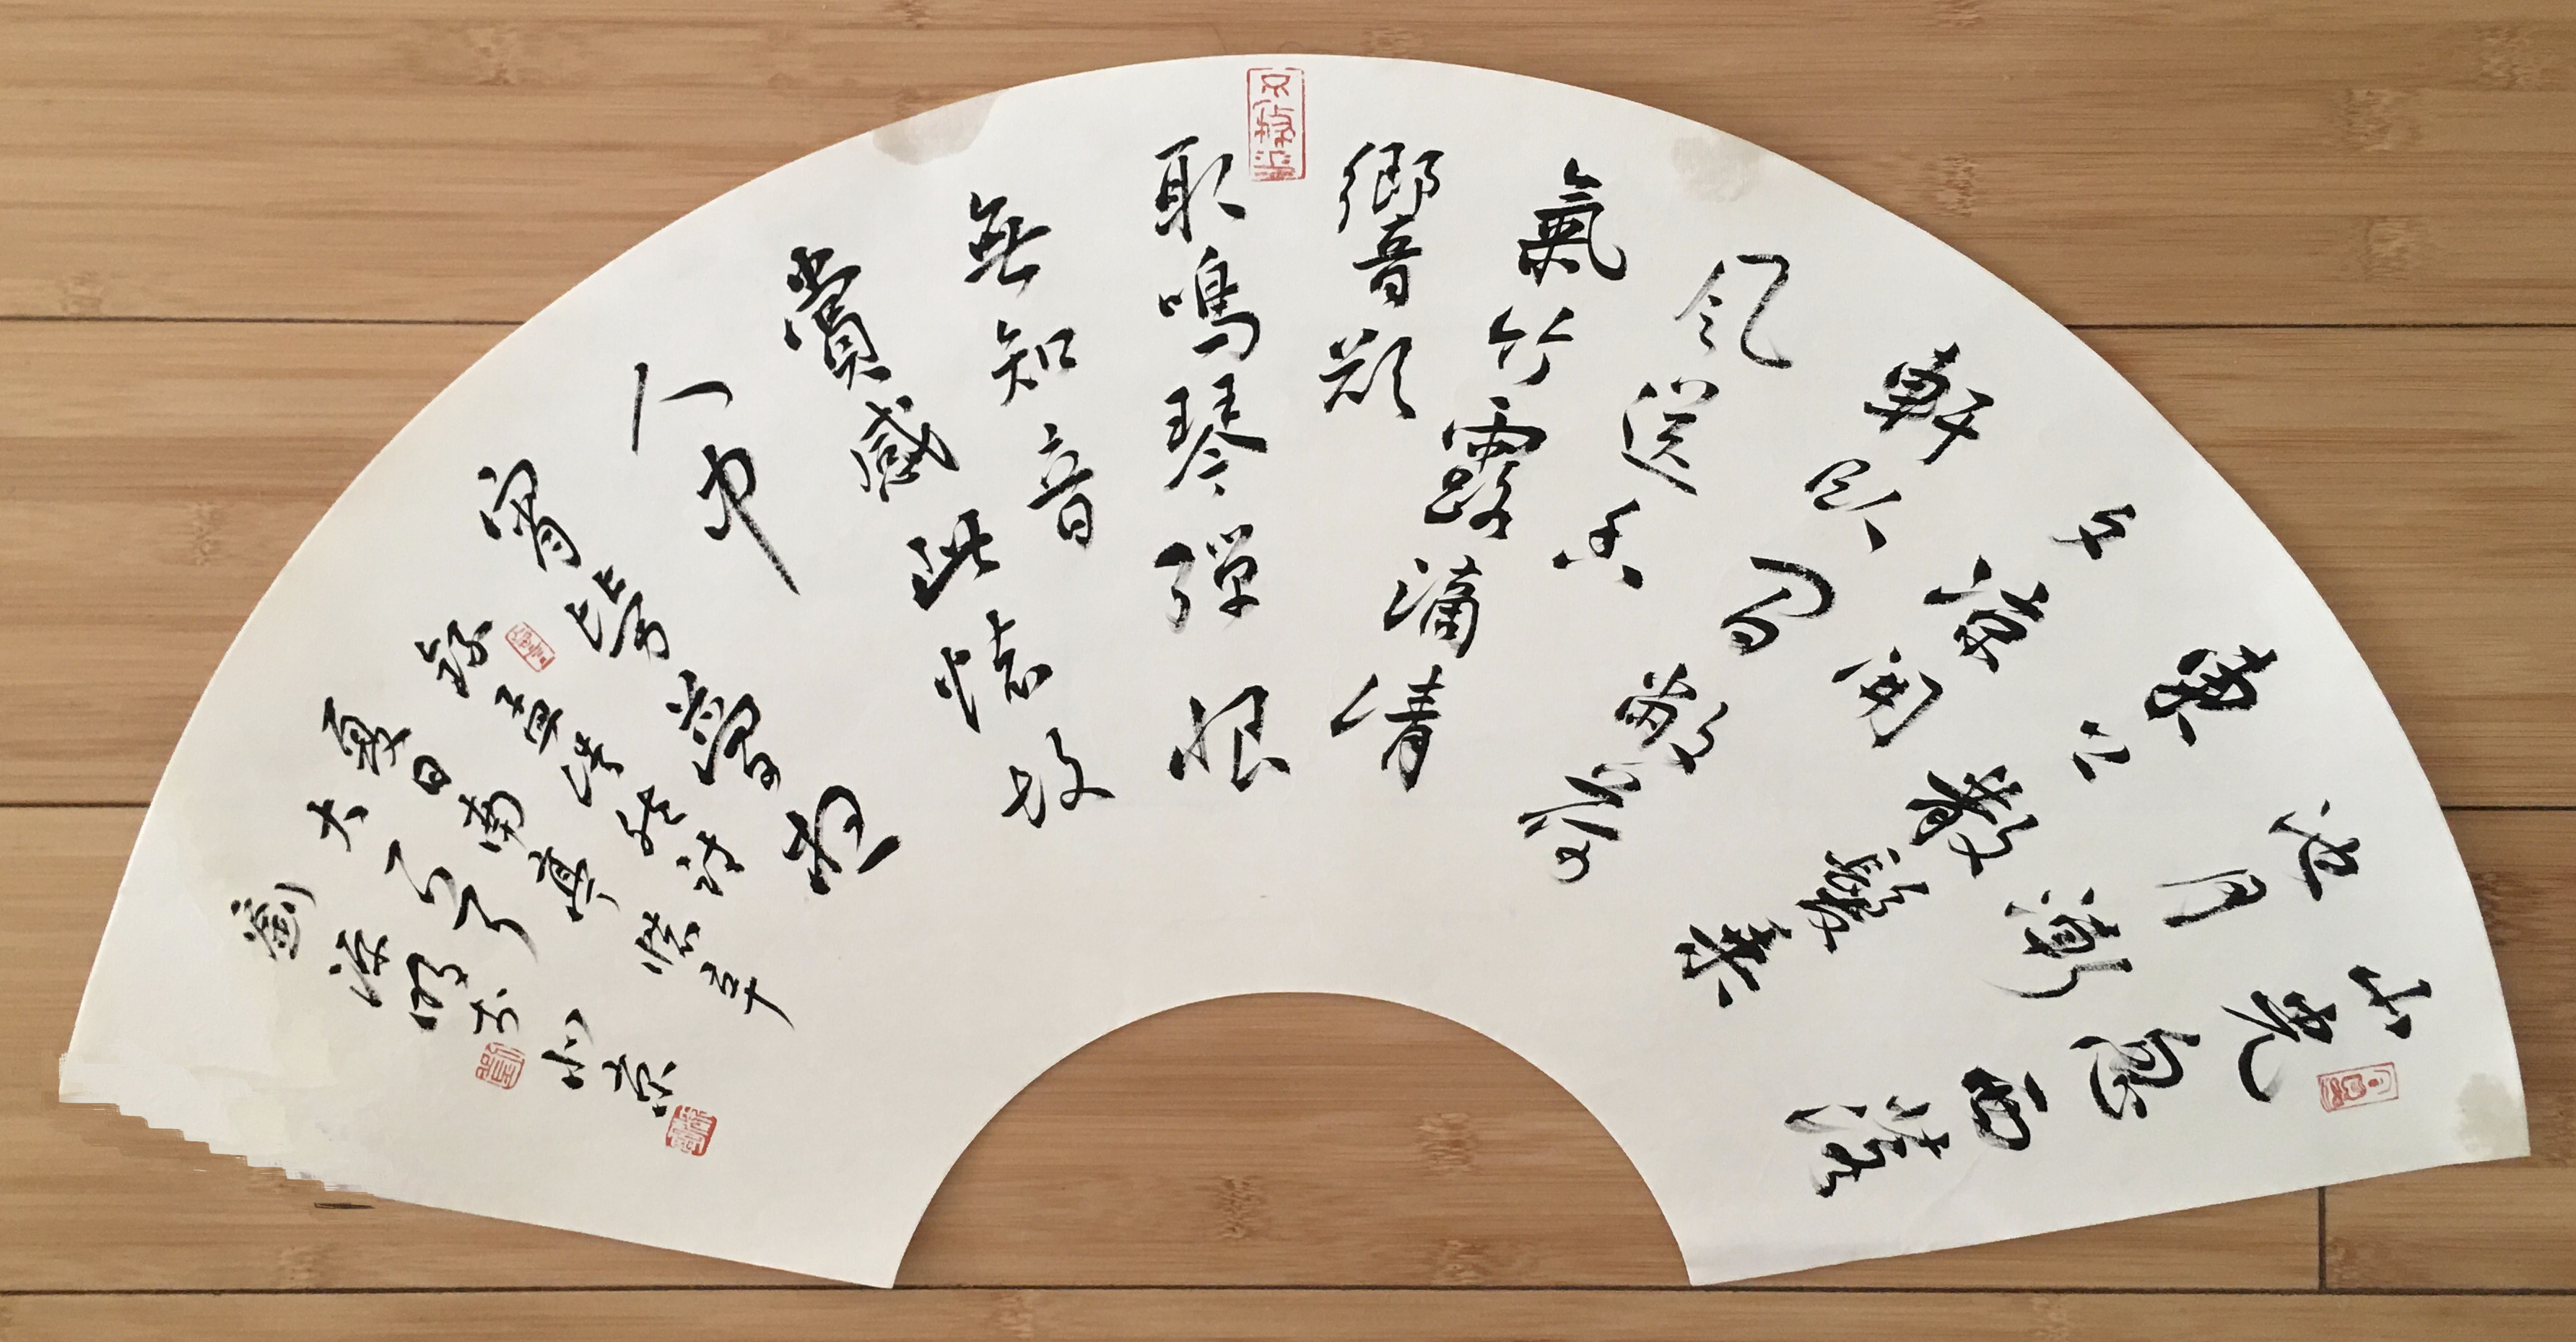 山光忽西落
池月漸
東上散髮乘
夕涼開
軒臥閒敞荷
風送香
氣竹露滴清
響欲
取鳴琴彈恨
無知音
賞感此懷故
人中
宵勞夢想
錄孟浩然詩
夏日南亭懷辛
大
劉明於北京